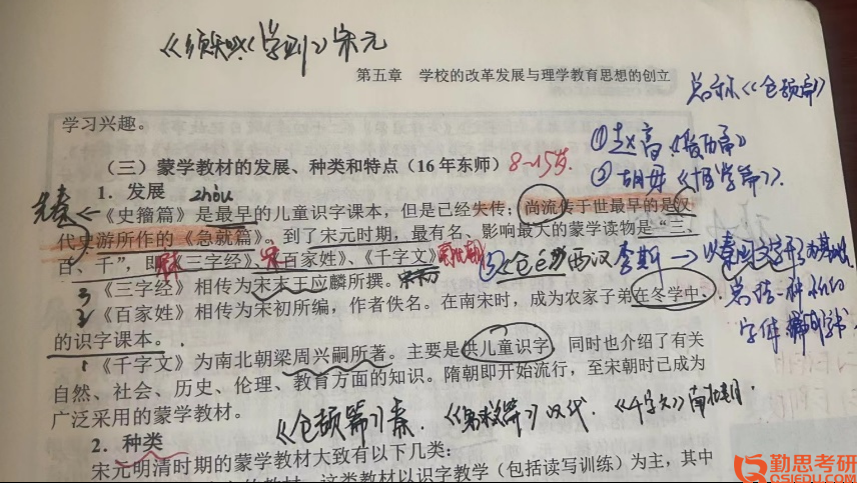 《须知》《学则》宋元
第五章 学校的改革发展与理学教育思想的创立
总称《仓颉篇》
学习兴趣。
(三)蒙学教材的发展、种类和特点(16年东师)
8~15岁.
①赵高《爰历篇》
②胡毋《博学篇》.
1.发展
zhòu
先秦
《史籀篇》是最早的儿童识字课本,但是已经失传;尚流传于世最早的是汉
代史游所作的《急就篇》。到了宋元时期,最有名、影响最大的蒙学读物是“三、
百、千”,即《三字经》、《百家姓》、《千字文》
宋
③《仓颉》
李斯→以秦国文字
3《三字经》相传为宋末王应麟所撰。
2《百家姓》相传为宋初所编,作者佚名。在南宋时,成为农家子弟在冬学中
总结一种
字体
的识字课本。
1《千字文》为南北朝梁周兴嗣所著。主要是供儿童识字,同时也介绍了有关
自然、社会、历史、伦理、教育方面的知识。隋朝即开始流行,至宋朝时已成为
广泛采用的蒙学教材。
《仓颉篇》秦.《急就篇》汉代.《千字文》南北朝.
2.种类
宋元明清时期的蒙学教材大致有以下几类:
教材,这类教材以识字教学(包括读写训练)为主,其中
勤思考研
QSIEDU.COM